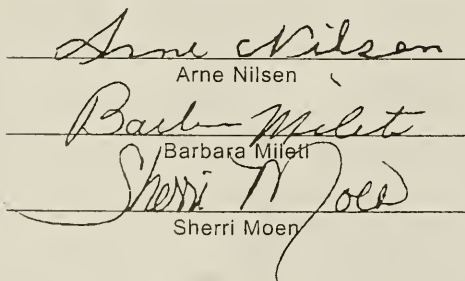 Arne Nilsen
Arne Nilsen
Barbara Mileti
Barbara Mileti
Sherri Moen
Sherri Moen